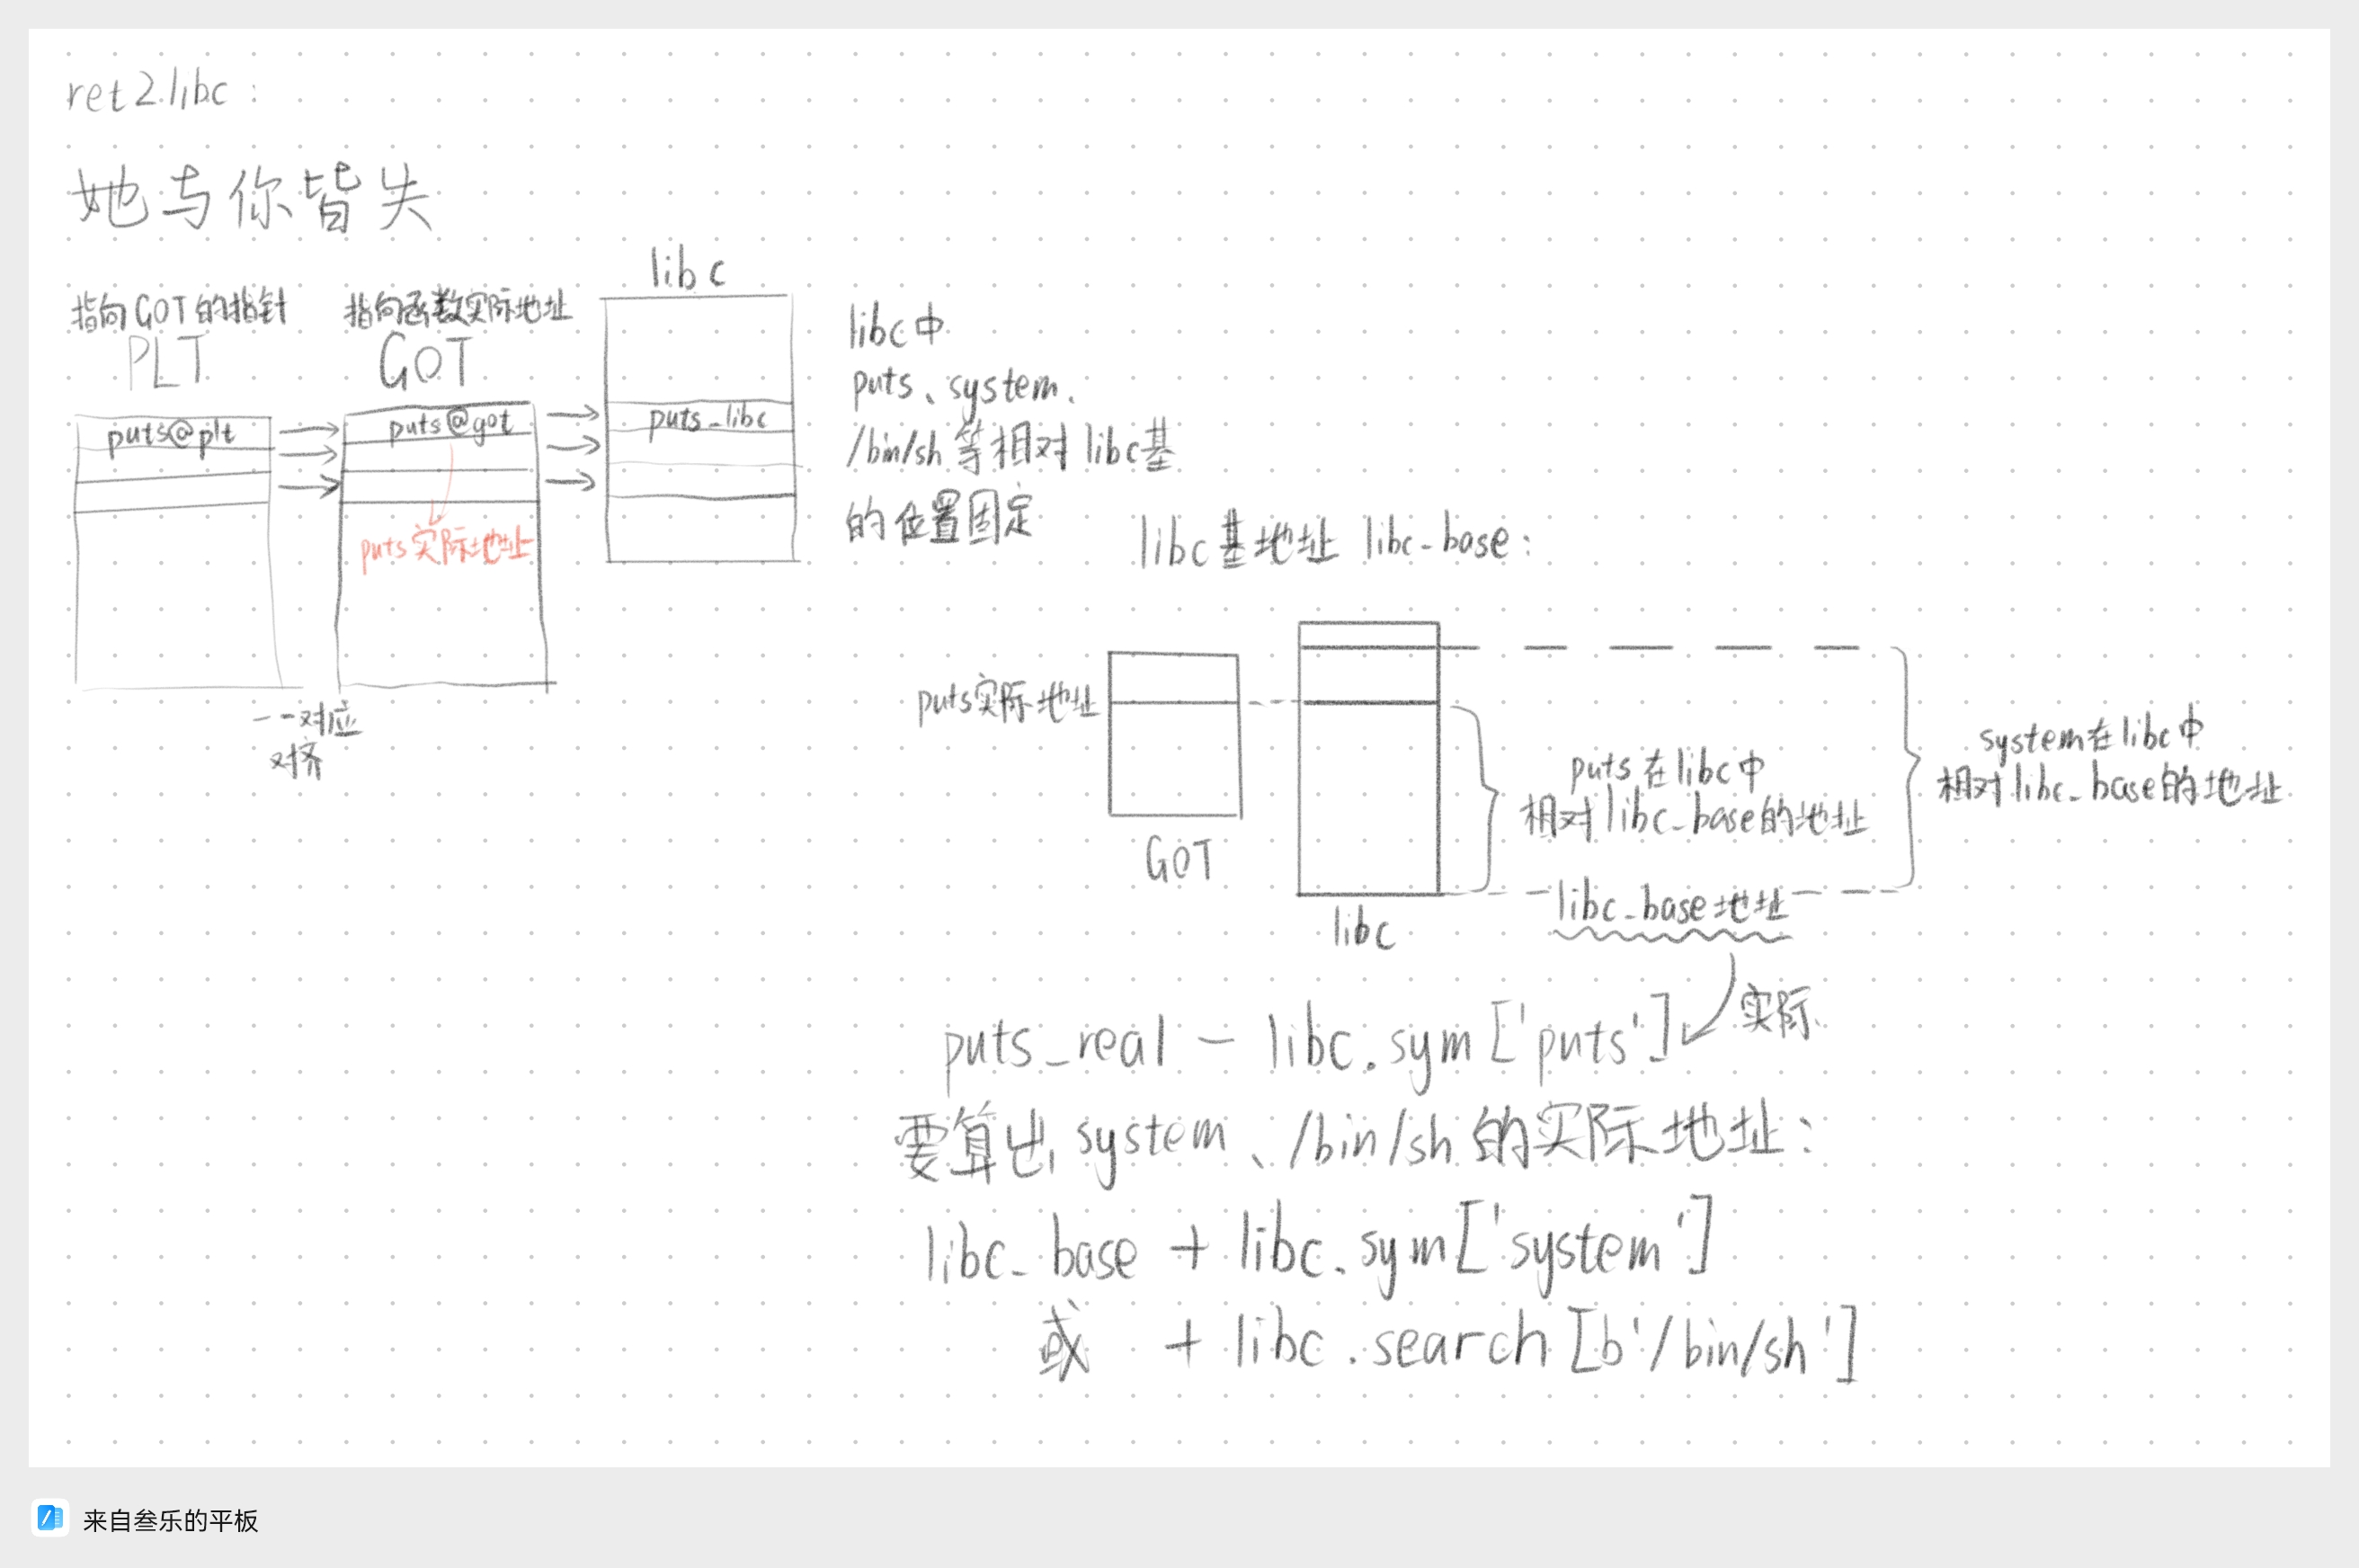 ret2libc:
她与你皆失
指向GOT的指针
PLT
puts@plt
指向函数实际地址
GOT
puts@got
puts实际地址
一一对应
对齐
libc
puts_libc
libc中
puts、system、
/bin/sh等相对libc基
的位置固定
libc基地址 libc_base:
puts实际地址
GOT
libc
puts在libc中
相对libc_base的地址
system在libc中
相对libc_base的地址
libc_base地址
实际
puts_real - libc.sym['puts']
要算出system、/bin/sh的实际地址:
libc_base + libc.sym['system']
或 + libc.search[b'/bin/sh']
来自叁乐的平板